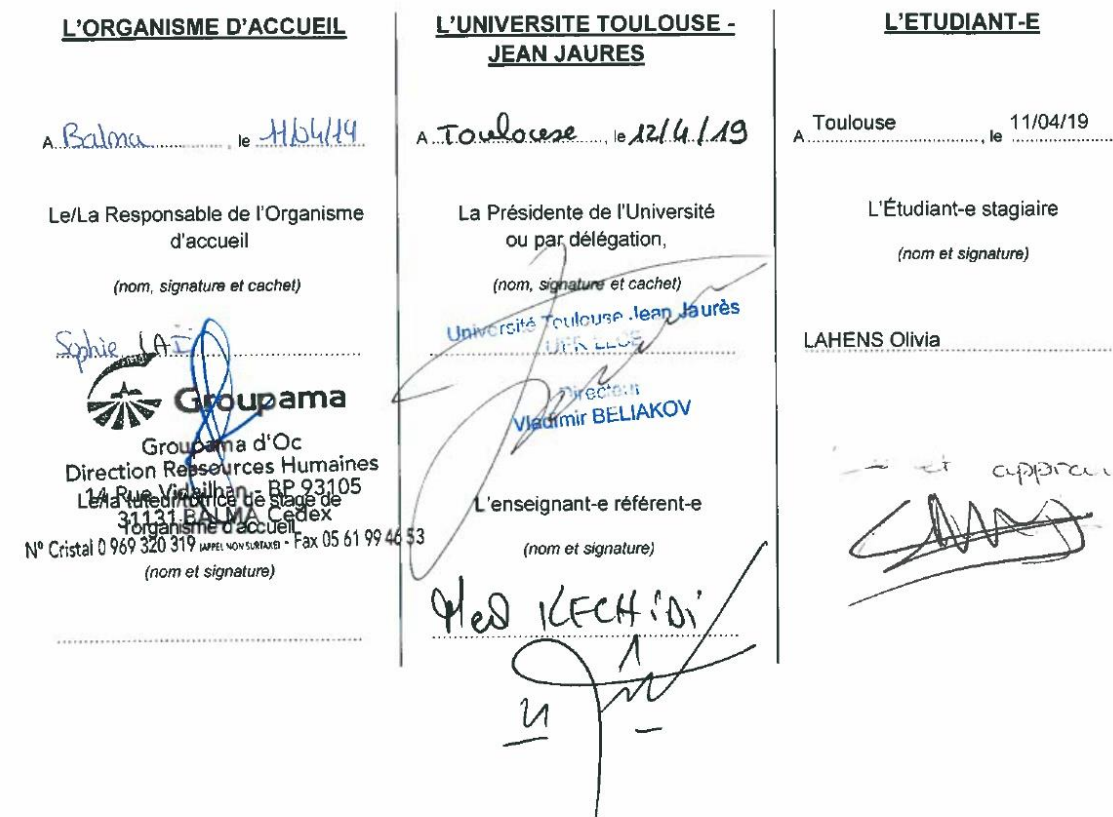 L'ORGANISME D'ACCUEIL
A Balma, le 11/04/19
Le/La Responsable de l'Organisme
d'accueil
(nom, signature et cachet)
Sophie
Groupama
Groupama d'Oc
Direction Ressources Humaines
14 Rue Vidailhan - BP 93105
31131 BALMA Cedex
N° Cristal 0 969 320 319 (APPEL NON SURTAXE) - Fax 05 61 99 46 53
Le/la tuteur/tutrice de stage de
l'organisme d'accueil
(nom et signature)
L'UNIVERSITE TOULOUSE -
JEAN JAURES
A Toulouse, le 12/4/19
La Présidente de l'Université
ou par délégation,
(nom, signature et cachet)
Université Toulouse Jean Jaurès
UFR
Directeur
Vladimir BELIAKOV
L'enseignant-e référent-e
(nom et signature)
Med KECHiDi
L'ETUDIANT-E
A Toulouse, le 11/04/19
L'Étudiant-e stagiaire
(nom et signature)
LAHENS Olivia
et approu